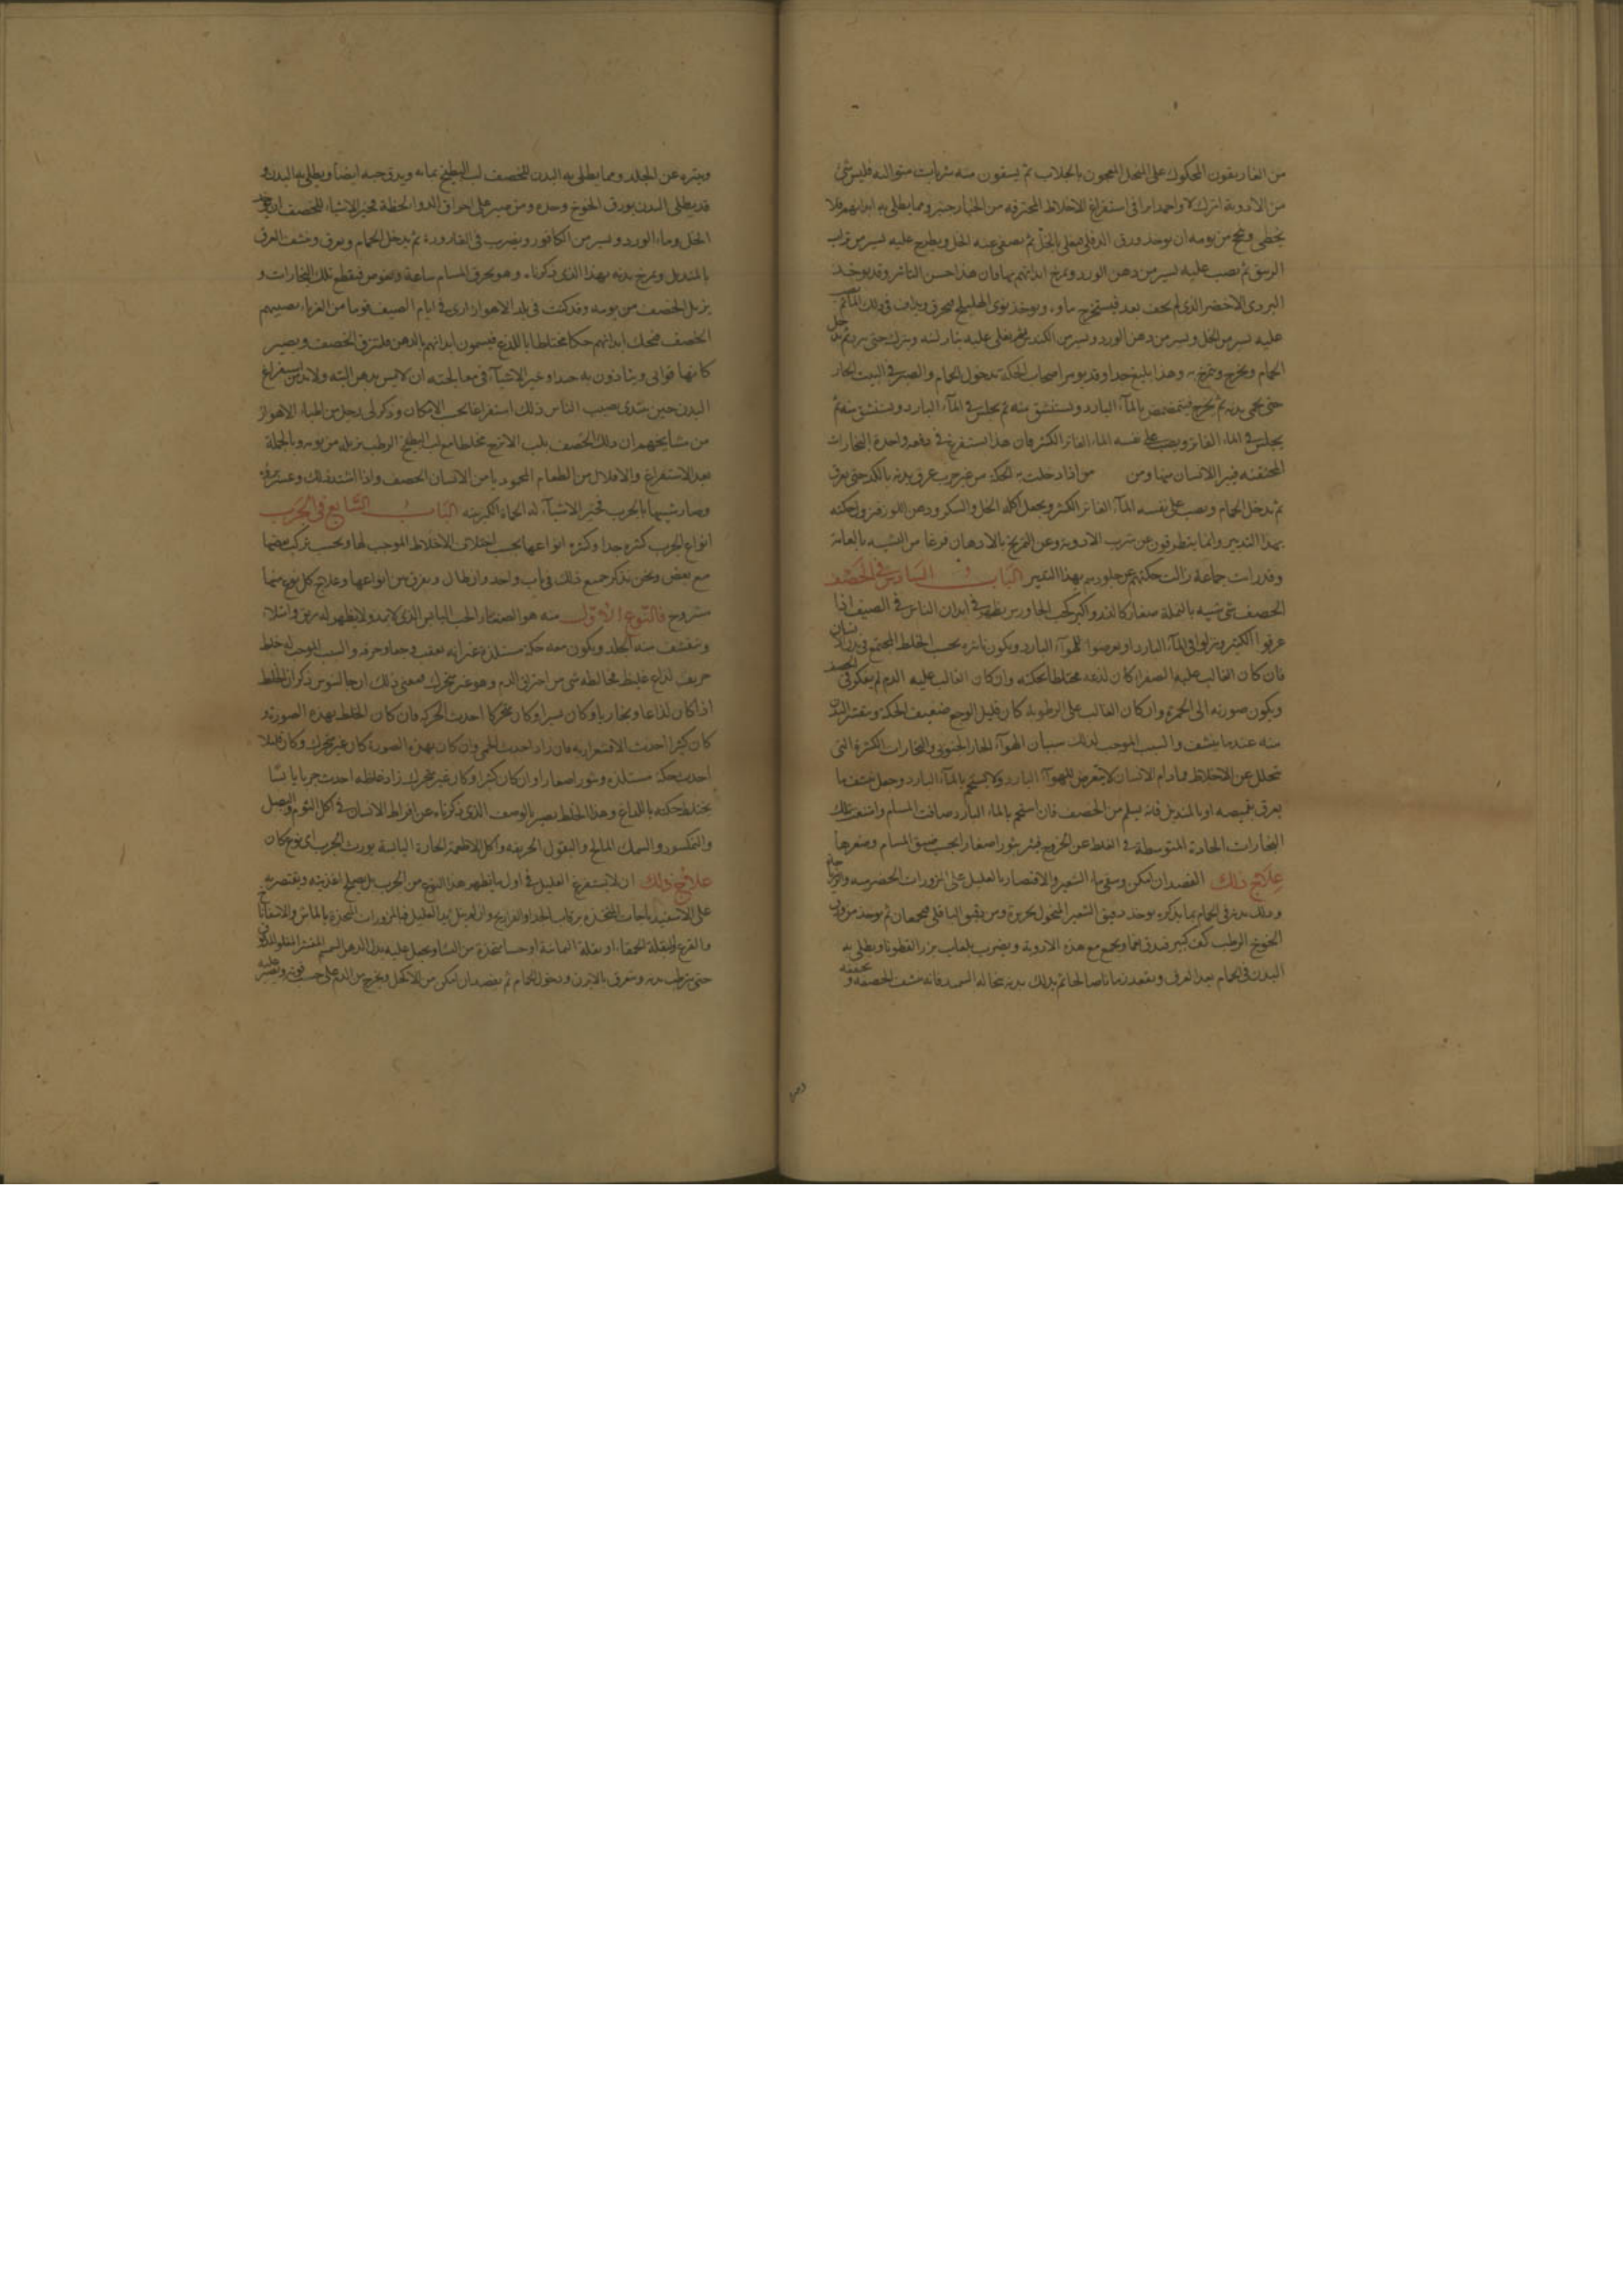 من الغاريقون المحكوك على المنخل المعجون بالجلاب ثم يسقون منه شربات متوالية فليس شئ
من الادوية اترك ولا احمد اثرا في استفراغ الاخلاط المحترقة من الخيارجنبر ومما يطلى به ابدانهم فلا
يخطى وينجح من يومه ان يوخذ ورق الدفلى فيغلى بالخل ثم يصفى عنه الخل ويطرح عليه يسير من تراب
الزيبق ثم يصب عليه يسير من دهن الورد ويمرخ ابدانهم بها فان هذا حسن التاثير وقد يوخذ
البردى الاخضر الذى لم يجف بعد فيستخرج ماوه ويوخذ نوى الهليلج فيحرق ويداف في ذلك الماء ثم
عليه يسير من الخل ويسير من دهن الورد ويسير من الكندر ثم يغلى عليه بنار لينة ويترك حتى يبرد ثم يدخل
الحمام ويخرج ويتمرخ به وهذا بليغ جدا وقد يومر اصحاب الحكة بدخول الحمام والصبر في البيت الحار
حتى يحمى بدنه ثم يخرج فيتمضمض بالماء البارد ويستنشق منه ثم يجلس في الماء البارد ويستنشق منه ثم
يجلس في الماء الفاتر ويصب على نفسه الماء الفاتر الكثير فان هذا يستفرغ في دفعة واحدة البخارات
المحتقنة فيبرا الانسان منها ومن من اذا دخلت به الحكة من غير جرب عرق بدنه بالكد حتى يعرق
ثم يدخل الحمام ويصب على نفسه الماء الفاتر الكثير ويجعل اكله الخل والسكر ودهن اللوز فيزول حكته
بهذا التدبير وانما يتطرقون من شرب الادوية وعن التمريخ بالادهان فرغا من التشبه بالعامة
وقد رايت جماعة زالت حكتهم عن جلودهم بهذا التدبير الباب السادس في الحصف
الحصف شئ شبيه بالنملة صغار كالذر واكبر كحب الجاورس يظهر في ابدان الناس في الصيف اذا
عرقوا الكثير ونزلوا في الماء البارد او تعرضوا للهواء البارد ويكون تاثره بحسب الخلط المجتمع في بدن الانسان
فان كان الغالب عليه الصفرا كان لذعه مختلطا بحكته وان كان الغالب عليه الدم لم يفكر في الحصف
ويكون صورته الى الحمرة وان كان الغالب على الرطوبة كان قليل الوجع ضعيف الحكة ويتقشر البدن
منه عندما ينشف والسبب الموجب لذلك سببان الهواء الحار الجنوبى والبخارات الكثيرة التى
تتحلل عن الاخلاط فما دام الانسان لا يتعرض للهواء البارد ولا يستحم بالماء البارد وجعل ينشف ما
يعرق بقميصه او بالمنديل فانه يسلم من الحصف فان استحم بالماء البارد ضاقت المسام وامتنعت تلك
البخارات الحادة المتوسطة في الغلظ عن الخروج فبثر بثورا صغارا بحسب ضيق المسام وصغرها
علاج ذلك الفصد ان امكن وسقى ماء الشعير والاقتصار بالعليل على المزورات الحصرمية
ودلك بدنه في الحمام بما يذكره يوخذ دقيق الشعير المنخول بحريرة ومن دقيق الباقلى فيجمعان ثم يوخذ من ورق
الخوخ الرطب كف كبير فيدق ناعما ويجمع مع هذه الادوية ويضرب بلعاب بزر القطونا ويطلى به
البدن في الحمام بعد العرق ويقعد زمانا صالحا ثم يدلك بدنه بنخالة السميد فانه ينشف الحصف ويجففه و
وينثره عن الجلد ومما يطلى به البدن للحصف لب البطيخ بمائه ويدق حبه ايضا ويطلى به البدن و
قد يطلى البدن بورق الخوخ وحده ومن صبر على احراق الدوا لحظة فخير الاشياء للحصف ان يوخذ
الخل وماء الورد ويسير من الكافور ويضرب في القارورة ثم يدخل الحمام ويعرق وينشف العرق
بالمنديل ويمرخ بدنه بهذا الذى ذكرناه وهو يحرق المسام ساعة ويقوم فيقطع تلك البخارات و
يزيل الحصف من يومه وقد كنت في بلد الاهواز ارى في ايام الصيف قوما من الغرباء يصيبهم
الحصف فيحك ابدانهم حكا مختلطا باللذع فيمسحون ابدانهم بالدهن فيلتزق الحصف ويصير
كانها قوابى ويتاذون به جدا وخير الاشياء في معالجته ان لا يمس بدهن البتة ولا بد من استفراغ
البدن حين يبتدى يصيب الناس ذلك استفراغا بحسب الامكان وذكر لى رجل من اطباء الاهواز
من مشايخهم ان دلك الحصف بلب الاترج مخلطا مع لب البطيخ الرطب يزيله من يومه وبالجملة
بعد الاستفراغ والاقلال من الطعام المحمود يامن الانسان الحصف واذا اشتد ذلك وعسر برؤه
وصار شبيها بالجرب فخير الاشياء له الحماة الكبريتية الباب السابع في الجرب
انواع الجرب كثيرة جدا وكثرة انواعها بحسب اختلاف الاخلاط الموجب لها وبحسب تركب بعضها
مع بعض ونحن نذكر جميع ذلك في باب واحد وان طال ونفرق بين انواعها وعلاج كل نوع منها
مشروح فالنوع الاول منه هو الصغار الحب اليابس الذى لا يمد ولا يظهر له بريق وامتلاء
ويتقشف منه الجلد ويكون معه حكة مستلذة غير انه يعقب وجعا وحرقة والسبب الموجب له خلط
حريف لذاع غليظ مخالطه شئ من احتراق الدم وهو غير متحرك فمعنى ذلك ان جالينوس ذكر ان الخلط
اذا كان لذاعا وبخاريا وكان يسيرا وكان متحركا احدث الحركة فان كان الخلط بهذه الصورة و
كان كثيرا احدث الاقشعرار به فان زاد احدث الحمى وان كان بهذه الصورة كان غير متحرك وكان قليلا
احدث حكة مستلذة وبثورا صغارا وان كان كثيرا وكان غير متحرك زاد غلظه احدث جربا يابسا
يختلط حكته باللداغ وهذا الخلط يصير بالوصف الذى ذكرناه عن افراط الانسان في اكل الثوم والبصل
والنمكسود والسمك المالح والبقول الحريفة واكل الاطعمة الحارة اليابسة يورث الجرب اى نوع كان
علاج ذلك ان لا يستفرغ العليل في اول ما يظهر هذا النوع من الجرب بل يصلح اغذيته ويقتصر به
على الاسفيدباجات المتخذة برقاب الجدا والفراريج وان لم ينل يد العليل فبالمزورات المتخذة بالماش والاسفاناخ
والقرع والبقلة الحمقاء او بقلة اليمانية او حسا متخذة من النشا ويجعل عليه بدل الدهن السمسم المقشر المقلو المدقوق
حتى يترطب بدنه ويتعرق بالابزن ودخول الحمام ثم يفصد ان امكن من الاكحل ويخرج من الدم على حسب قوته